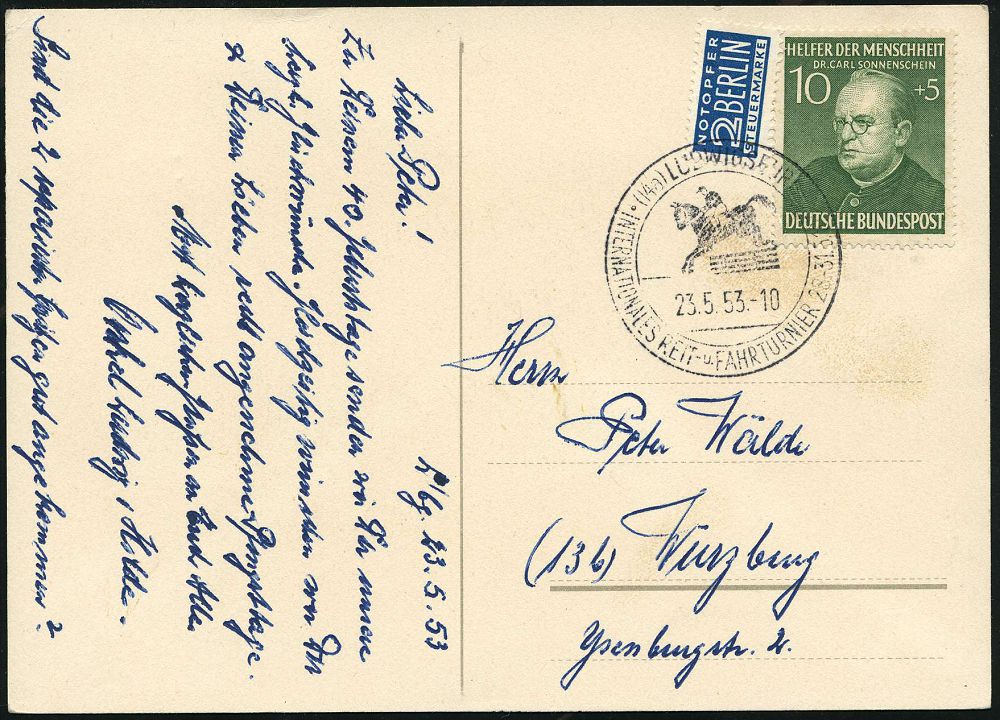 L'bg. 23.5.53
Lieber Peter!
Zu Deinem 40. Geburtstage senden wir Dir unsere
herzl. Glückwünsche. Gleichzeitig wünschen wir Dir
& Deinen Lieben recht angenehme Pfingsttage.
Mit herzlichen Grüßen an Euch Alle
Onkel Ludwig & Hilde.
Sind die 2 reparierten gut angekommen?
NOTOPFER
2 BERLIN
STEUERMARKE
HELFER DER MENSCHHEIT
DR. CARL SONNENSCHEIN
10 +5
DEUTSCHE BUNDESPOST
(14a) LUDWIGSBURG
INTERNATIONALES REIT- u. FAHRTURNIER 28.-31.5.
23.5.53.-10
Herrn
Peter Wälde
(13b) Würzburg
Ysenburgstr. 2.